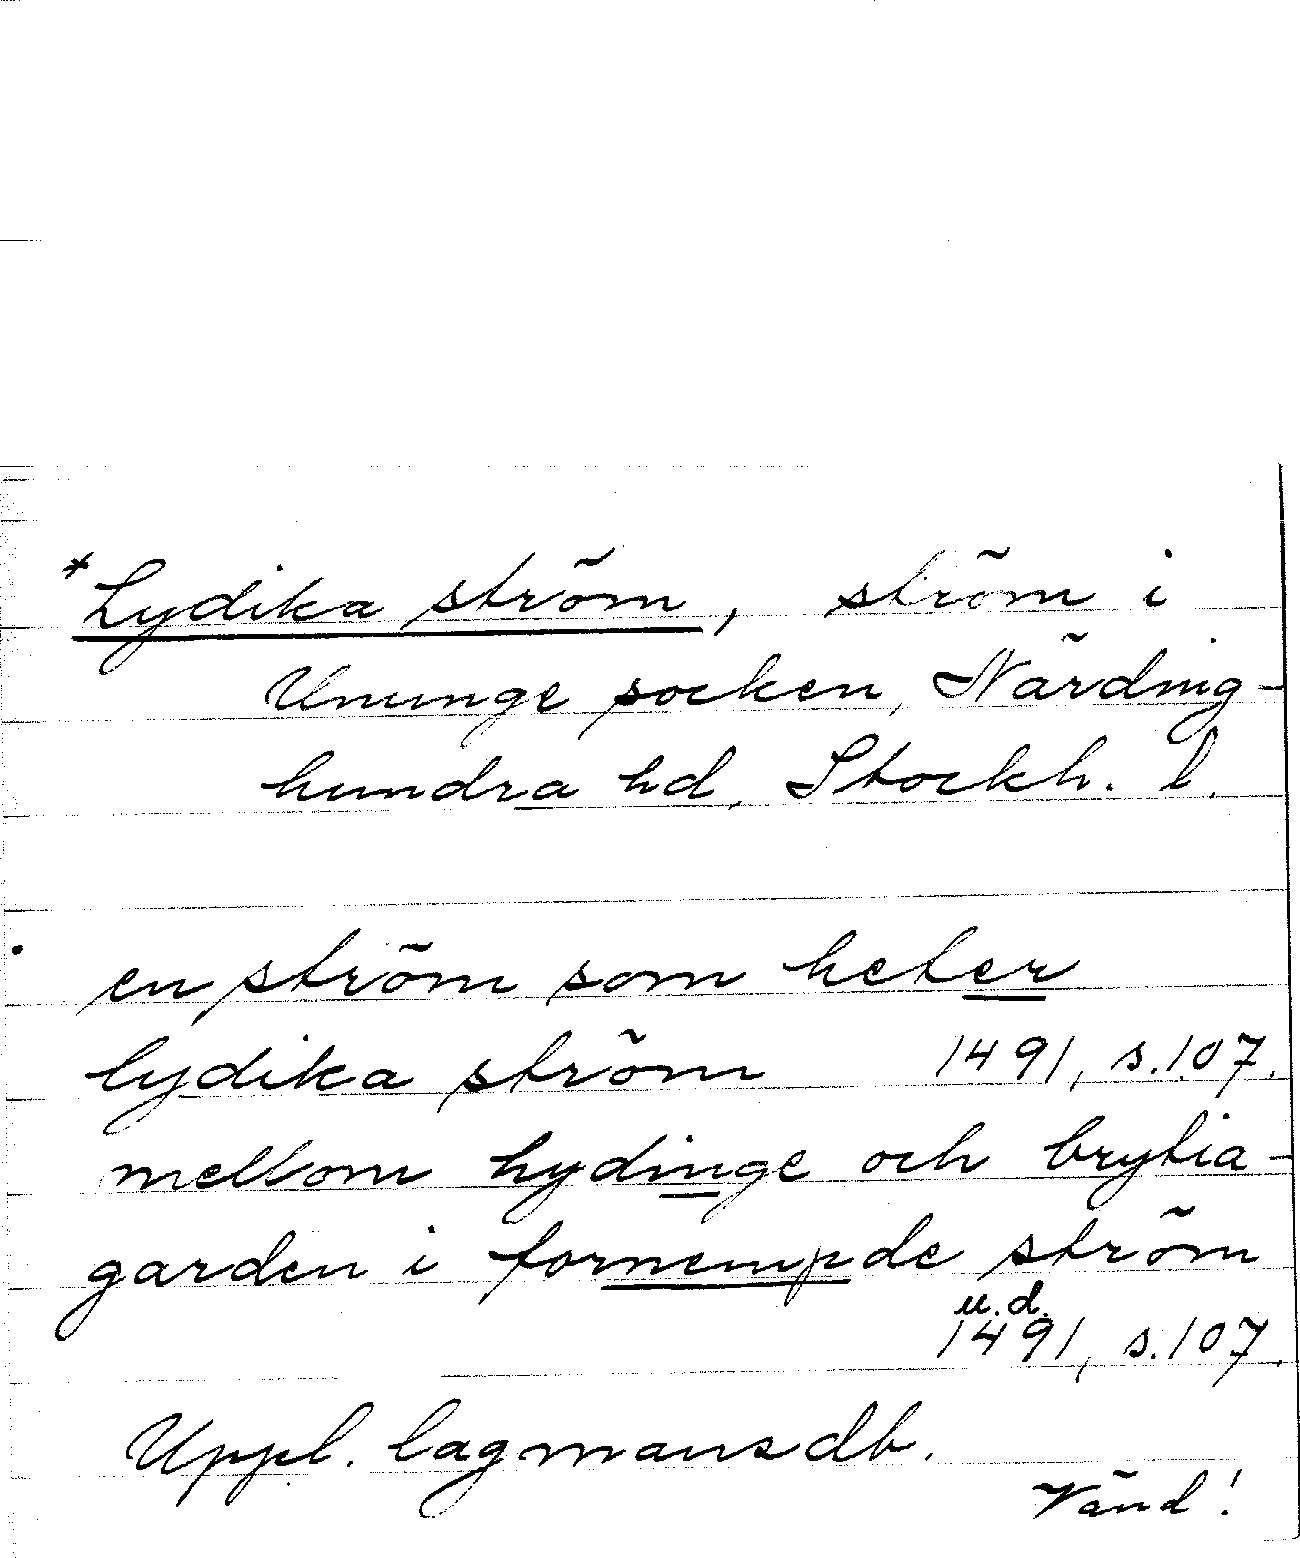 *Lydika ström, ström i
Ununge socken, Närding-
hundra hd, Stockh. l.
en ström som heter
lydika ström 1491, s.107.
mellom hydinge och brytia-
garden i fornempde ström
u.d.
1491, s.107.
Uppl. lagmansdb.
Vänd!